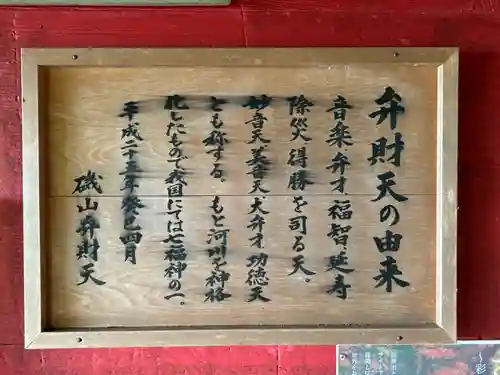 弁財天の由来
音楽弁才福智延寿
除災得勝を司る天。
妙音天、美音天、大弁才功徳天
とも称する。もと河川を神格
化したもので我国にては七福神の一。
平成二十五年癸巳四月
磯山弁財天